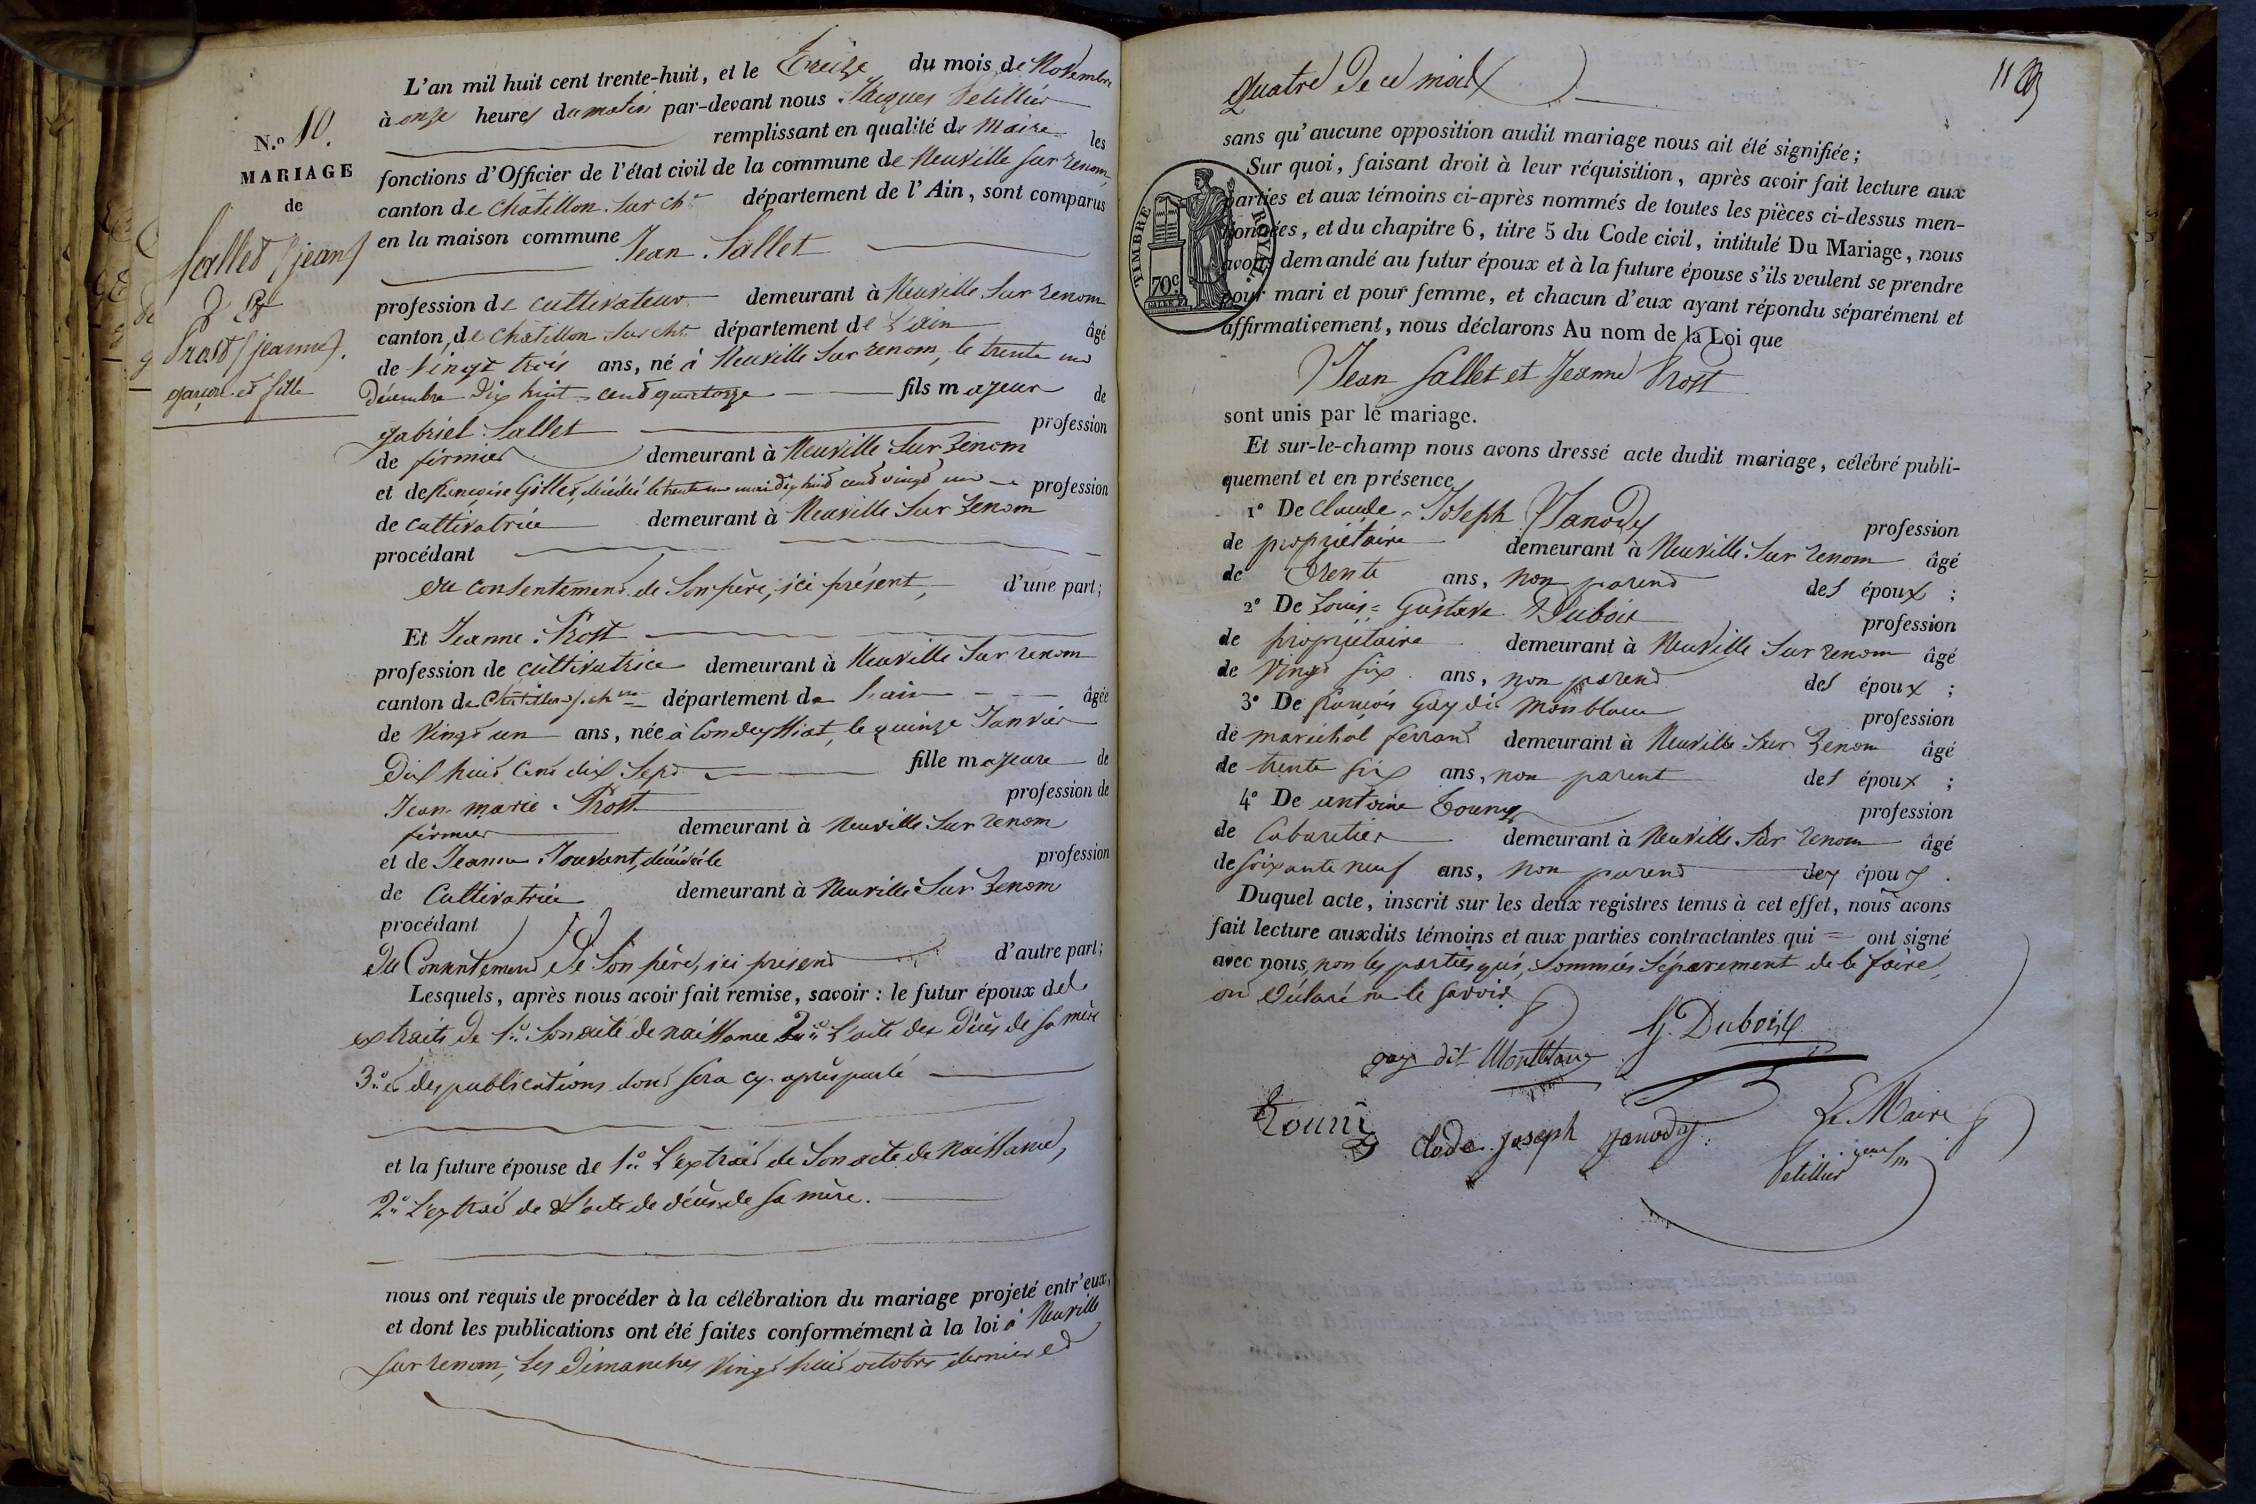 N.o 10.
MARIAGE
de
Sallet (jean)
& et
Prost (jeanne).
garçon et fille
L'an mil huit cent trente-huit, et le Treize du mois de Novembre
à onze heures du matin par-devant nous Jacques Petillier
remplissant en qualité de Maire les
fonctions d'Officier de l'état civil de la commune de Neuville sur renom,
canton de Châtillon sur chne département de l'Ain, sont comparus
en la maison commune Jean Sallet
profession de cultivateur demeurant à Neuville sur renom
canton de Châtillon sur chne département de L'ain âgé
de Vingt trois ans, né à Neuville sur renom, le trente un
Décembre Dix huit cent quatorze fils majeur de
gabriel Sallet profession
de fermier demeurant à Neuville sur Renom
et de françoise Gillet, décédée le trente un mai dix huit cent vingt un profession
de cultivatrice demeurant à Neuville sur Renom
procédant
du consentement de son père, ici présent, d'une part;
Et Jeanne Prost
profession de cultivatrice demeurant à Neuville sur renom
canton de Châtillon s. chne département de L'ain âgée
de Vingt un ans, née à Condeyssiat, le quinze Janvier
Dix huit Cent dix Sept fille majeure de
Jean-marie Prost profession de
fermier demeurant à Neuville sur renom
et de Jeanne Jouvent, décédée profession
de Cultivatrice demeurant à Neuville sur Renom
procédant
du Consentement de son père, ici présent d'autre part;
Lesquels, après nous avoir fait remise, savoir: le futur époux des
extraits de 1o. Son acte de naissance 2o. L'acte des Décès de sa mère
3o. et des publications dont sera cy-après parlé
et la future épouse de 1o. L'extrait de Son acte de Naissance,
2o. L'extrait de L'acte de décès de sa mère.
nous ont requis de procéder à la célébration du mariage projeté entr'eux,
et dont les publications ont été faites conformément à la loi à Neuville
sur renom, Les Dimanches Vingt huit octobre dernier et
quatre de ce mois
sans qu'aucune opposition audit mariage nous ait été signifiée;
Sur quoi, faisant droit à leur réquisition, après avoir fait lecture aux
parties et aux témoins ci-après nommés de toutes les pièces ci-dessus men-
tionnées, et du chapitre 6, titre 5 du Code civil, intitulé Du Mariage, nous
avons demandé au futur époux et à la future épouse s'ils veulent se prendre
pour mari et pour femme, et chacun d'eux ayant répondu séparément et
affirmativement, nous déclarons Au nom de la Loi que
Jean Sallet et Jeanne Prost
sont unis par le mariage.
Et sur-le-champ nous avons dressé acte dudit mariage, célébré publi-
quement et en présence
1o De Claude-Joseph Janody profession
de propriétaire demeurant à Neuville sur renom âgé
de Trente ans, non parent des époux;
2o De Louis-Gustave Dubois profession
de propriétaire demeurant à Neuville sur renom âgé
de Vingt six ans, non parent des époux;
3o De françois Gay dit Montblanc profession
de maréchal ferrant demeurant à Neuville sur Renom âgé
de trente six ans, non parent des époux;
4o De antoine Touny profession
de Cabaretier demeurant à Neuville sur renom âgé
de soixante neuf ans, non parent des époux.
Duquel acte, inscrit sur les deux registres tenus à cet effet, nous avons
fait lecture auxdits témoins et aux parties contractantes qui = ont signé
avec nous, non les parties qui, sommées séparement de le faire,
ont déclaré ne le savoir
G. Dubois
gay dit Montblanc
Touni
Clode Joseph Janody
Le Maire
Petillier
TIMBRE ROYAL
70c